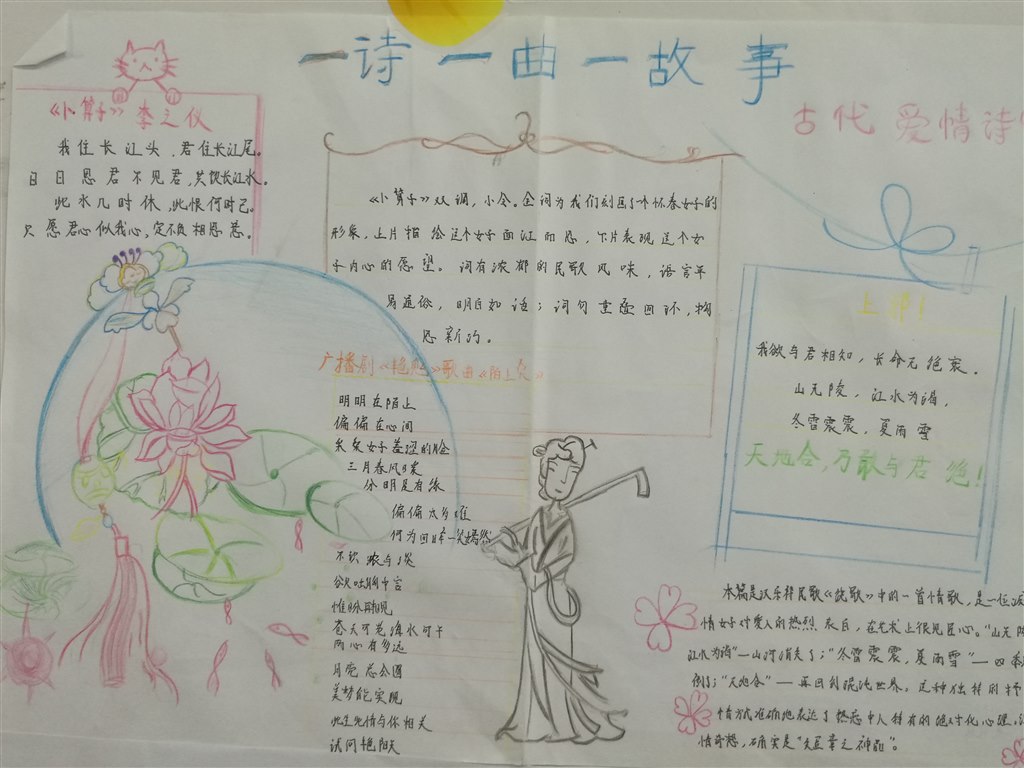 一诗一曲一故事
古代爱情诗
《卜算子》李之仪
我住长江头，君住长江尾。
日日思君不见君，共饮长江水。
此水几时休，此恨何时已。
只愿君心似我心，定不负相思意。
《卜算子》双调，小令。全词为我们刻画了个怀春女子的
形象，上片描绘这个女子面江而思，下片表现这个女
子内心的愿望。词有浓郁的民歌风味，语言平
易通俗，明白如话；词句重叠回环，构
思新巧。
广播剧《艳阳》歌曲《陌上众》
明明在陌上
偏偏在心间
采桑女子羞涩的脸
三月春风暖
分明是有缘
偏偏太为难
何为回眸一笑嫣然
不识浓与淡
欲吐胸中言
惟盼再见
苍天可老海水可干
两心有多远
月亮总会圆
美梦能实现
此生光情与你相关
试问艳阳天
上邪！
我欲与君相知，长命无绝衰。
山无陵，江水为竭，
冬雷震震，夏雨雪
天地合，乃敢与君绝！
本篇是汉乐府民歌《铙歌》中的一首情歌，是一位
情女子对爱人的热烈表白，在艺术上很见匠心。“山无
江水为竭”—山河消失了；“冬雷震震，夏雨雪”—四季
倒了；“天地合”—再回到混沌世界。这种独特的抒
情方式准确地表达了热恋中人特有的绝对化心理。
情奇想，确实是“短章之神品”。